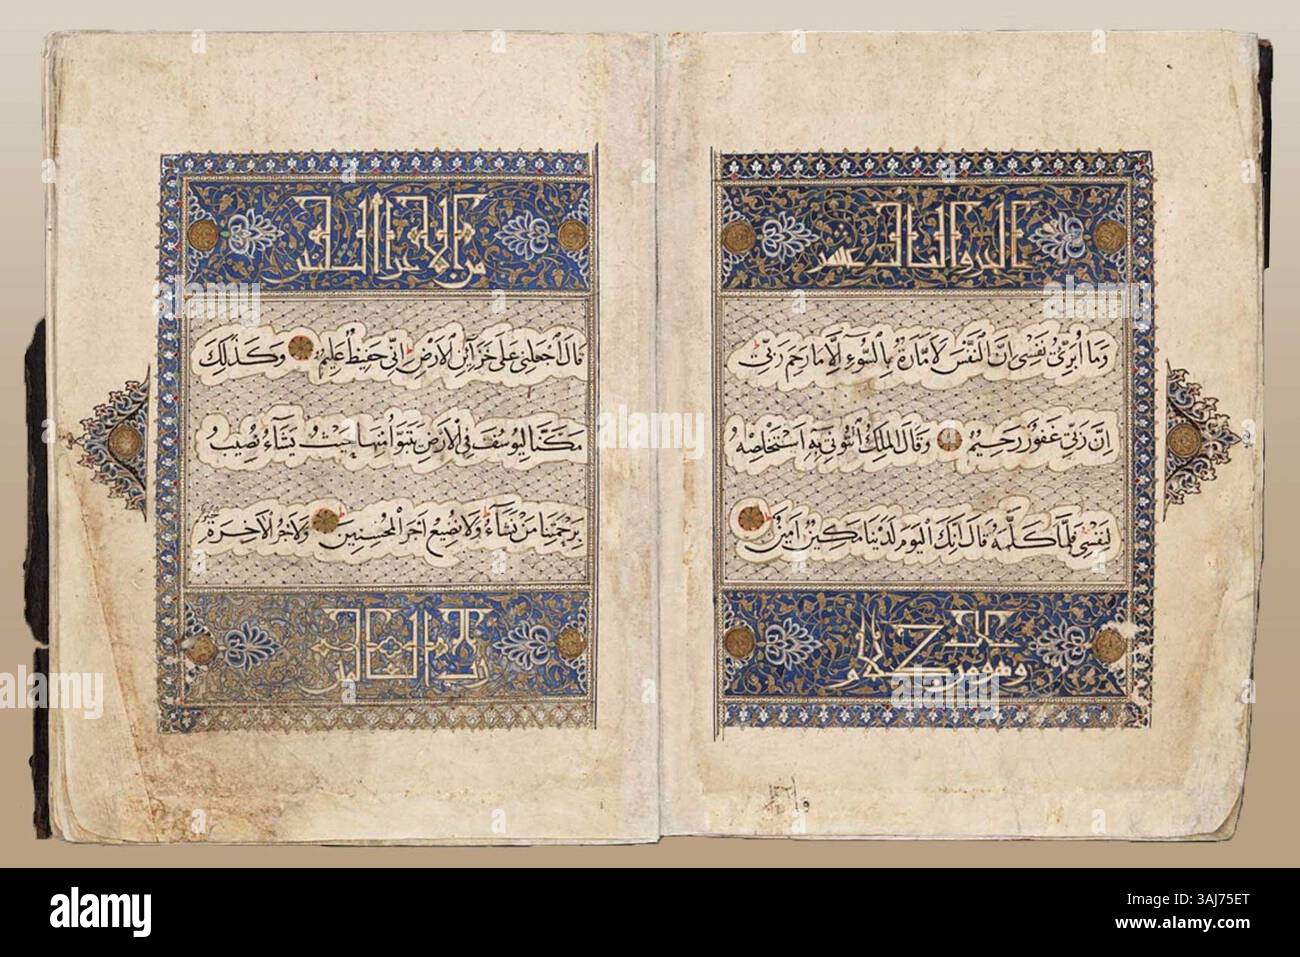 الجزو الثالث عشر
وَمَا أُبَرِّئُ نَفْسِى اِنَّ النَّفْسَ لَاَمَّارَةٌ بِالسُّوءِ اِلَّا مَا رَحِمَ رَبِّى
اِنَّ رَبِّى غَفُورٌ رَحِيمٌ وَقَالَ الْمَلِكُ ائْتُونِى بِهِ اَسْتَخْلِصْهُ
لِنَفْسِى فَلَمَّا كَلَّمَهُ قَالَ اِنَّكَ الْيَوْمَ لَدَيْنَا مَكِينٌ اَمِينٌ
وهو من كلام
من الاجزاء الثلثين
قَالَ اجْعَلْنِى عَلَى خَزَآئِنِ الْاَرْضِ اِنِّى حَفِيظٌ عَلِيمٌ وَكَذٰلِكَ
مَكَّنَّا لِيُوسُفَ فِى الْاَرْضِ يَتَبَوَّأُ مِنْهَا حَيْثُ يَشَاءُ نُصِيبُ
بِرَحْمَتِنَا مَنْ نَشَاءُ وَلَا نُضِيعُ اَجْرَ الْمُحْسِنِينَ وَلَاَجْرُ الْاٰخِرَةِ
خير
رب العالمين
alamy
Image ID: 3AJ75ET
www.alamy.com